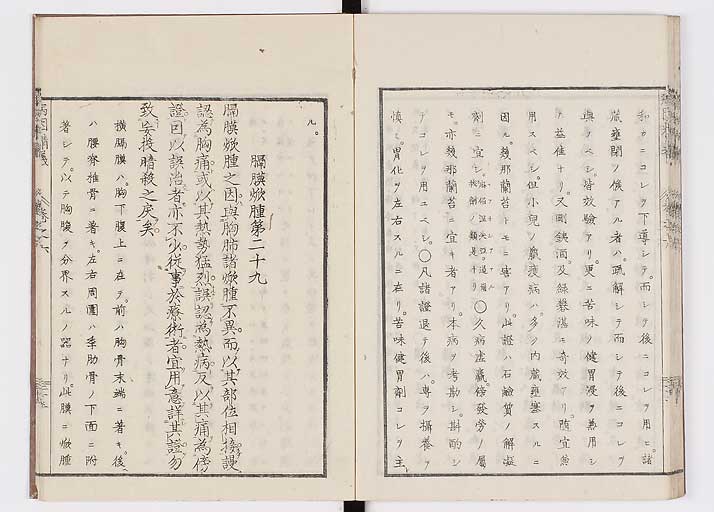 和カニコレヲ下導シテ。而シテ後ニコレヲ用ヒ。諸
蔵壅閉ノ候アル者ハ。疏解シテ而シテ後ニコレヲ
與フベシ。皆放驗アリ。更ニ苦味ノ健胃浸ヲ兼用シ
テ益佳ナリ。又剛鉄酒及緑礬湛ニ奇效アリ。隨宜兼
用スベシ。但小兒ノ羸瘦病ハ。多ク内蔵壅塞スルニ
因ル。幾那蘭苔トモニ害アリ。此證ハ石鹼質ノ解凝
劑ニ宜シ。〇久病虚羸。徐發勞ノ屬
モ。亦幾那蘭苔ニ宜キ者アリ。本病ヲ考勘シ。斟酌シ
テコレヲ用ユベシ。〇凡諸證退テ後ハ。專ヲ攝養ヲ
慎ミ。胃化ヲ左右スルニ在リ。苦味健胃劑コレヲ主
ル。
膈膜焮腫第二十九
膈膜焮腫之因。與胸肺諸焮腫不異。而以其部位相接。謾
認為胸痛。或以其熱勢猛烈。誤認為熱病。及以其痛為傍
證。因以誤治者。亦不少。従事於療術者。宜用意詳其證。勿
致妄投暗殺之戻矣。
横膈膜ハ。胸下腹上ニ在ヲ。前ハ胸骨末端ニ着キ。後
ハ腰脊椎骨ニ着キ。左右周圍ハ季肋骨ノ下面ニ附
著シテ。以テ胸腹ヲ分界スルノ器ナリ。此膜ニ焮腫